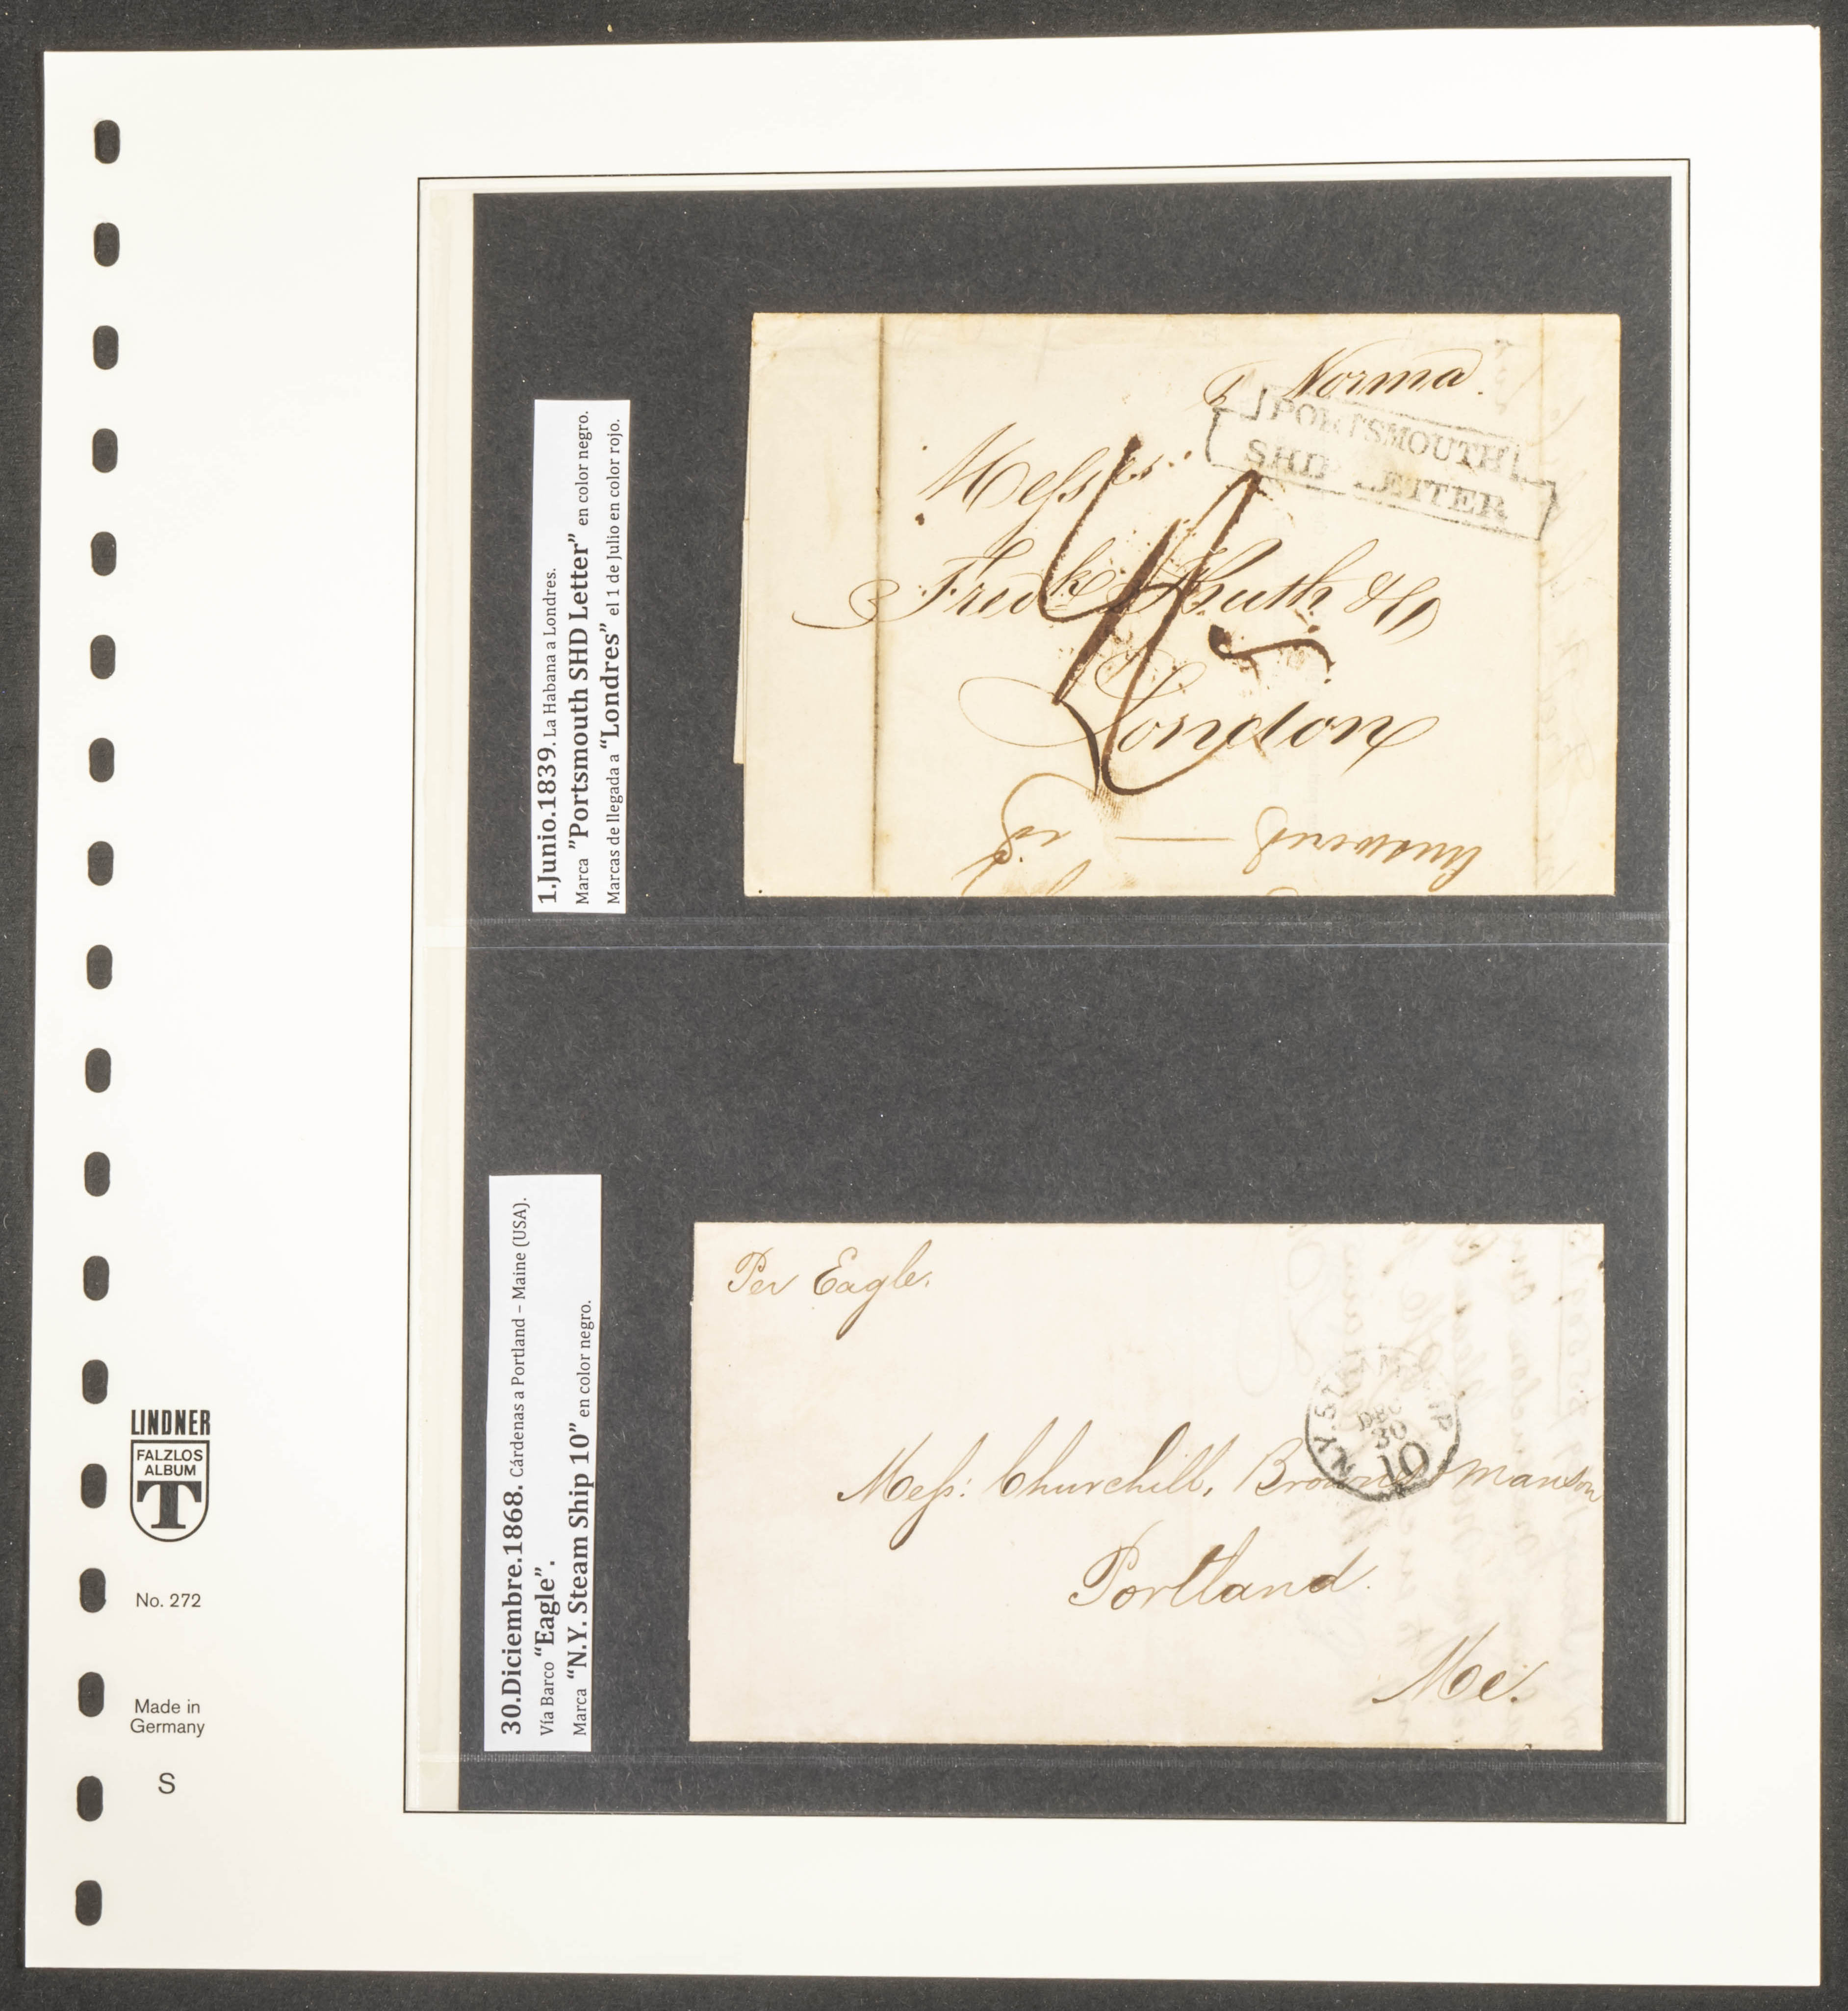 1.Junio.1839. La Habana a Londres.
Marca "Portsmouth SHD Letter" en color negro.
Marcas de llegada a "Londres" el 1 de Julio en color rojo.
p Norma.
PORTSMOUTH
SHIP LETTER
Messrs.
Fredk Huth & Co
London
Answered
30.Diciembre.1868. Cárdenas a Portland – Maine (USA).
Vía Barco "Eagle".
Marca "N.Y. Steam Ship 10" en color negro.
Per Eagle.
N.Y. STEAMSHIP
DEC
30
10
Mess: Churchill, Browns Manson
Portland.
Me.
LINDNER
FALZLOS
ALBUM
T
No. 272
Made in
Germany
S